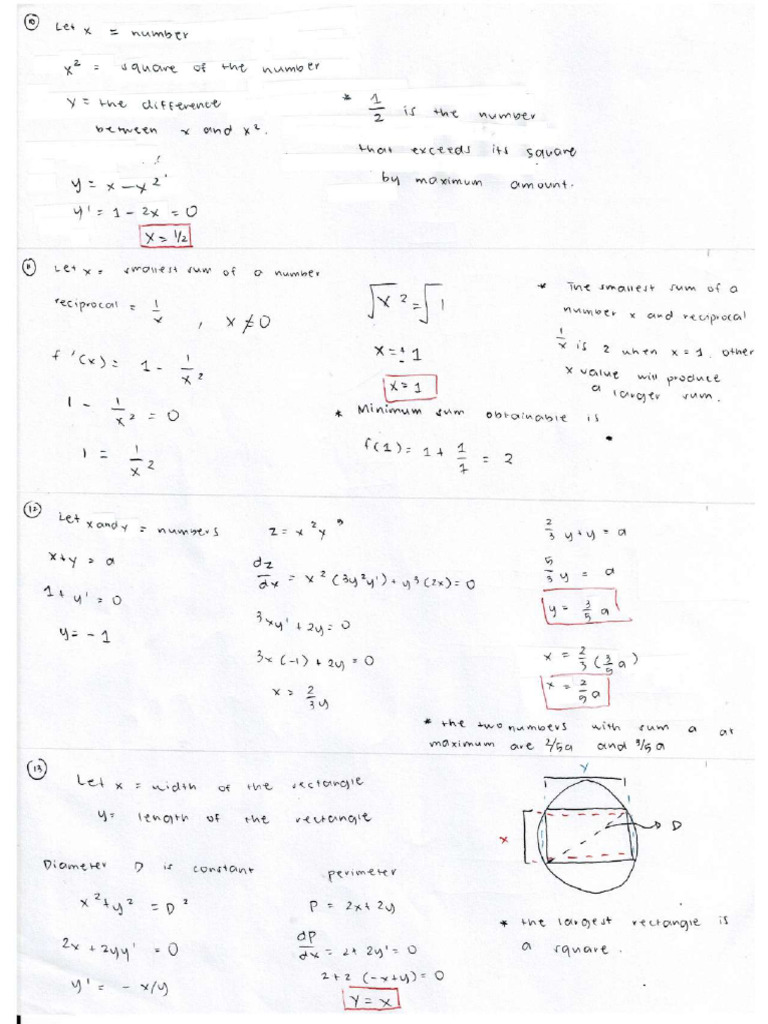 10
Let x = number
x² = square of the number
y = the difference
between x and x².
y = x - x²
y' = 1 - 2x = 0
x = 1/2
* 1/2 is the number
that exceeds its square
by maximum amount.
11
Let x = smallest sum of a number
reciprocal = 1/x , x ≠ 0
f'(x) = 1 - 1/x²
1 - 1/x² = 0
1 = 1/x²
√x² = √1
x = ± 1
x = 1
* Minimum sum obtainable is
f(1) = 1 + 1/1 = 2
* The smallest sum of a
number x and reciprocal
1/x is 2 when x = 1. other
x value will produce
a larger sum.
12
Let x and y = numbers
x+y = a
1 + y' = 0
y = -1
z = x²y³
dz/dx = x² (3y²y') + y³ (2x) = 0
3xy' + 2y = 0
3x (-1) + 2y = 0
x = 2/3 y
2/3 y + y = a
5/3 y = a
y = 3/5 a
x = 2/3 (3/5 a)
x = 2/5 a
* the two numbers with sum a at
maximum are 2/5a and 3/5a
13
Let x = width of the rectangle
y = length of the rectangle
Diameter D is constant
x² + y² = D²
2x + 2yy' = 0
y' = - x/y
perimeter
P = 2x + 2y
dP/dx = 2 + 2y' = 0
2 + 2 (-x+y) = 0
y = x
y
x
D
* the largest rectangle is
a square.